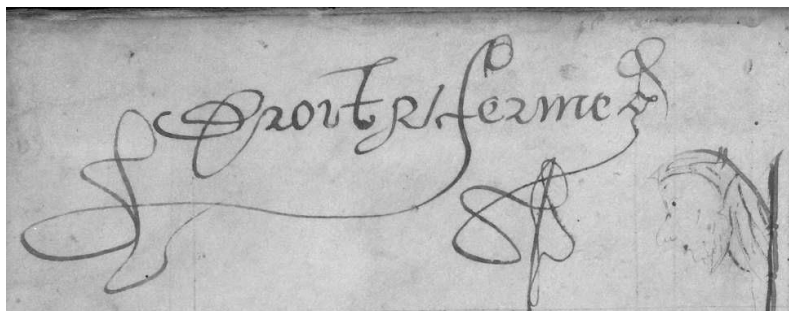 Droit & ferme